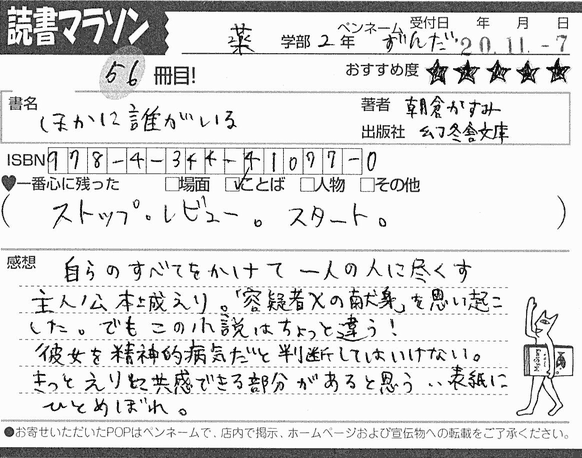 読書マラソン
ペンネーム 受付日 年 月 日
薬 学部 2 年 ずんだ '20.11.-7
56 冊目!
おすすめ度 ★★★★★
書名
ほかに誰がいる
著者 朝倉かすみ
出版社 幻冬舎文庫
ISBN 978-4-344-41077-0
♥一番心に残った □場面 ☑ことば □人物 □その他
(ストップ。レビュー。スタート。)
感想 自らのすべてをかけて一人の人に尽くす
主人公 本城えり。「容疑者Xの献身」を思い起こ
した。でもこの小説はちょっと違う!
彼女を精神的病気だと判断してはいけない。
きっと えりと共感できる部分があると思う‥表紙に
ひとめぼれ。
●お寄せいただいたPOPはペンネームで、店内で掲示、ホームページおよび宣伝物への転載をご了承ください。